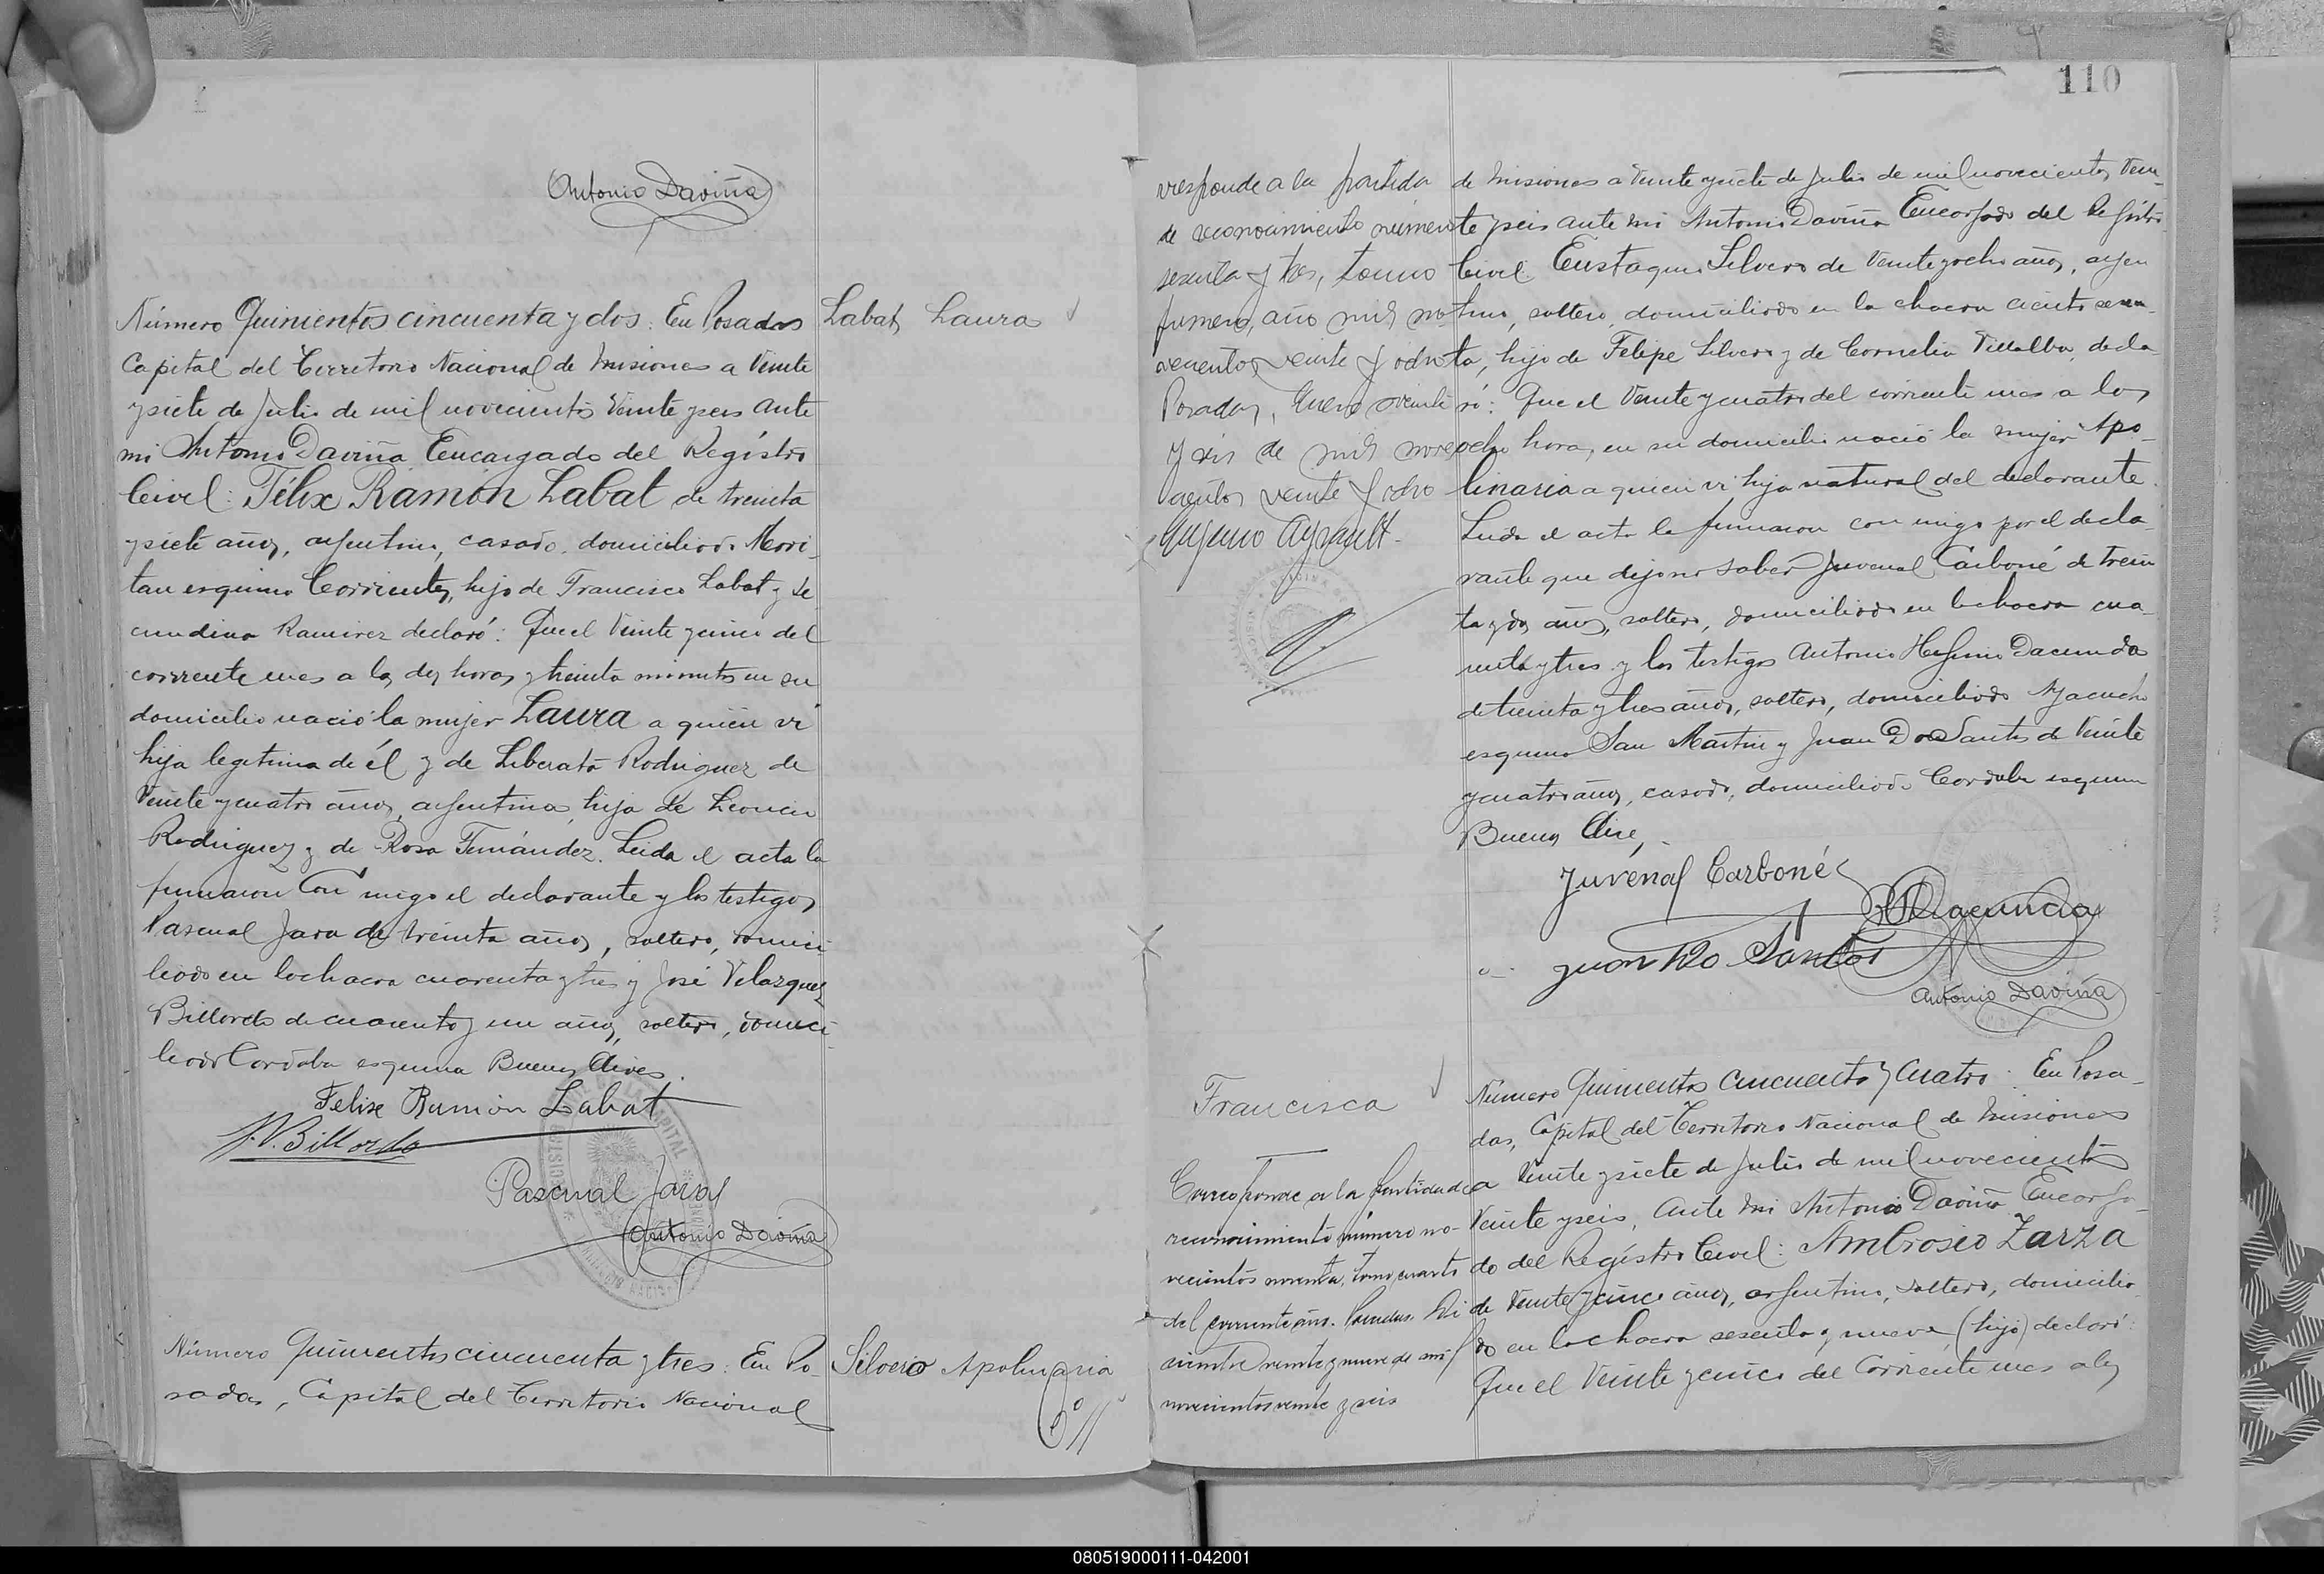 Antonio Daviña
Número Quinientos cincuenta y dos: En Posadas
Capital del Territorio Nacional de Misiones a Veinte
y siete de Julio de mil novecientos Veinte y seis ante
mi Antonio Daviña Encargado del Registro
Civil: Félix Ramón Labat de treinta
y siete años, argentino, casado, domiciliado
esquina Corrientes, hijo de Francisco Labat y Se
cundina Ramirez declaró: Que el Veinte y cinco del
corriente mes a las dos horas y treinta minutos en su
domicilio nació la mujer Laura a quien vi
hija legitima de él y de Liberata Rodriguez de
Veinte y cuatro años, argentina, hija de Leoncio
Rodriguez y de Rosa Fernández. Leida el acta la
firmaron con migo el declarante y los testigos
Pascual Jara de treinta años, soltero, domici
liado en la chacra cuarenta y tres y José Velazquez
Billordo de cuarenta y un años, soltero, domici
liado Cordoba esquina Buenos Aires.
Felix Ramón Labat
J.V. Billordo
Pascual Jara
Antonio Daviña
Labat, Laura
Número Quinientos cincuenta y tres: En Po-
sadas, Capital del Territorio Nacional
Silvero Apolinaria
110
rresponde a la partida
de reconocimiento número
sesenta y tres, tomo
primero, año mil no
vecientos veinte y ocho
Posadas, Enero veinte
y seis de mil nove
cientos veinte y ocho
de Misiones a Veinte y siete de Julio de mil novecientos Vein
te y seis ante mi Antonio Daviña Encargado del Registro
Civil: Eustaquio Silvero de Veinte y ocho años, argen
tino, soltero, domiciliado en la chacra ciento
ta, hijo de Felipe Silvero y de Cornelia Villalba, decla
ró: Que el Veinte y cuatro del corriente mes a las
ocho horas, en su domicilio nació la mujer Apo-
linaria a quien vi hija natural del declarante.
Leida el acta la firmaron con migo por el decla
rante que dijo no saber Juvenal Carboné de trein
ta y dos años, soltero, domiciliado en la chacra cua-
renta y tres y los testigos Antonio Higinio Dacunda
de treinta y tres años, soltero, domiciliado Ayacucho
esquina San Martin y Juan Do Santos de Veinte
y cuatro años, casado, domiciliado Cordoba esquina
Buenos Aires,
Juvénal Carboné
Juan Do Santos
Antonio Daviña
Francisca
Corresponde a la partida de
reconocimiento número no-
vecientos noventa, tomo cuarto
del corriente año. Posadas. Di
ciembre veinte y nueve de mil
novecientos veinte y seis
Número Quinientos cincuenta y cuatro: En Posa-
das, Capital del Territorio Nacional de Misiones
a Veinte y siete de Julio de mil novecientos
Veinte y seis, ante mi Antonio Daviña Encarga-
do del Registro Civil: Ambrosio Zarza
de Veinte y cinco años, argentino, soltero, domicilia
do en la chacra sesenta y nueve (hijo) declaró:
Que el Veinte y cinco del corriente mes a las
080519000111-042001